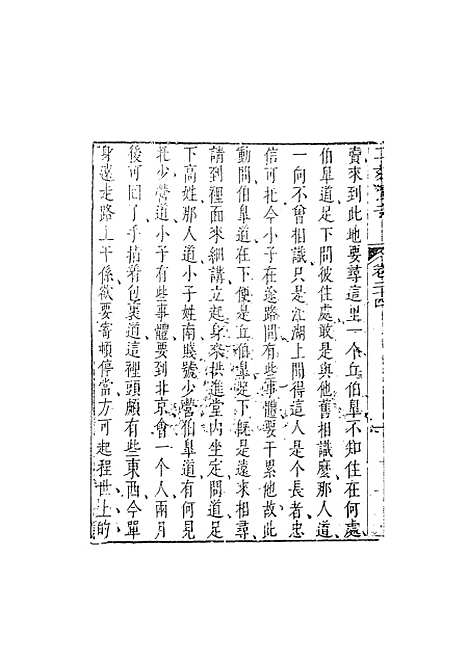 卷二十四
賣來到此地要尋這里一个丘伯皐不知住在何處
伯皐道足下問彼住處敢是與他舊相識麼那人道
一向不曾相識只是江湖上聞得這人是个長者忠
信可托今小子在途路間有些事體要干累他故此
動問伯皐道在下便是丘伯皐足下旣是遠來相尋
請到裡面來細講立起身來拱進堂內坐定問道足
下高姓那人道小子姓南賤號少營伯皐道有何見
托少營道小子有些事體要到北京會一个人兩月
後可回了手掿着包裹道這裡頭頗有些東西今單
身遠走路上干係欲要寄頓停當方可起程世上的